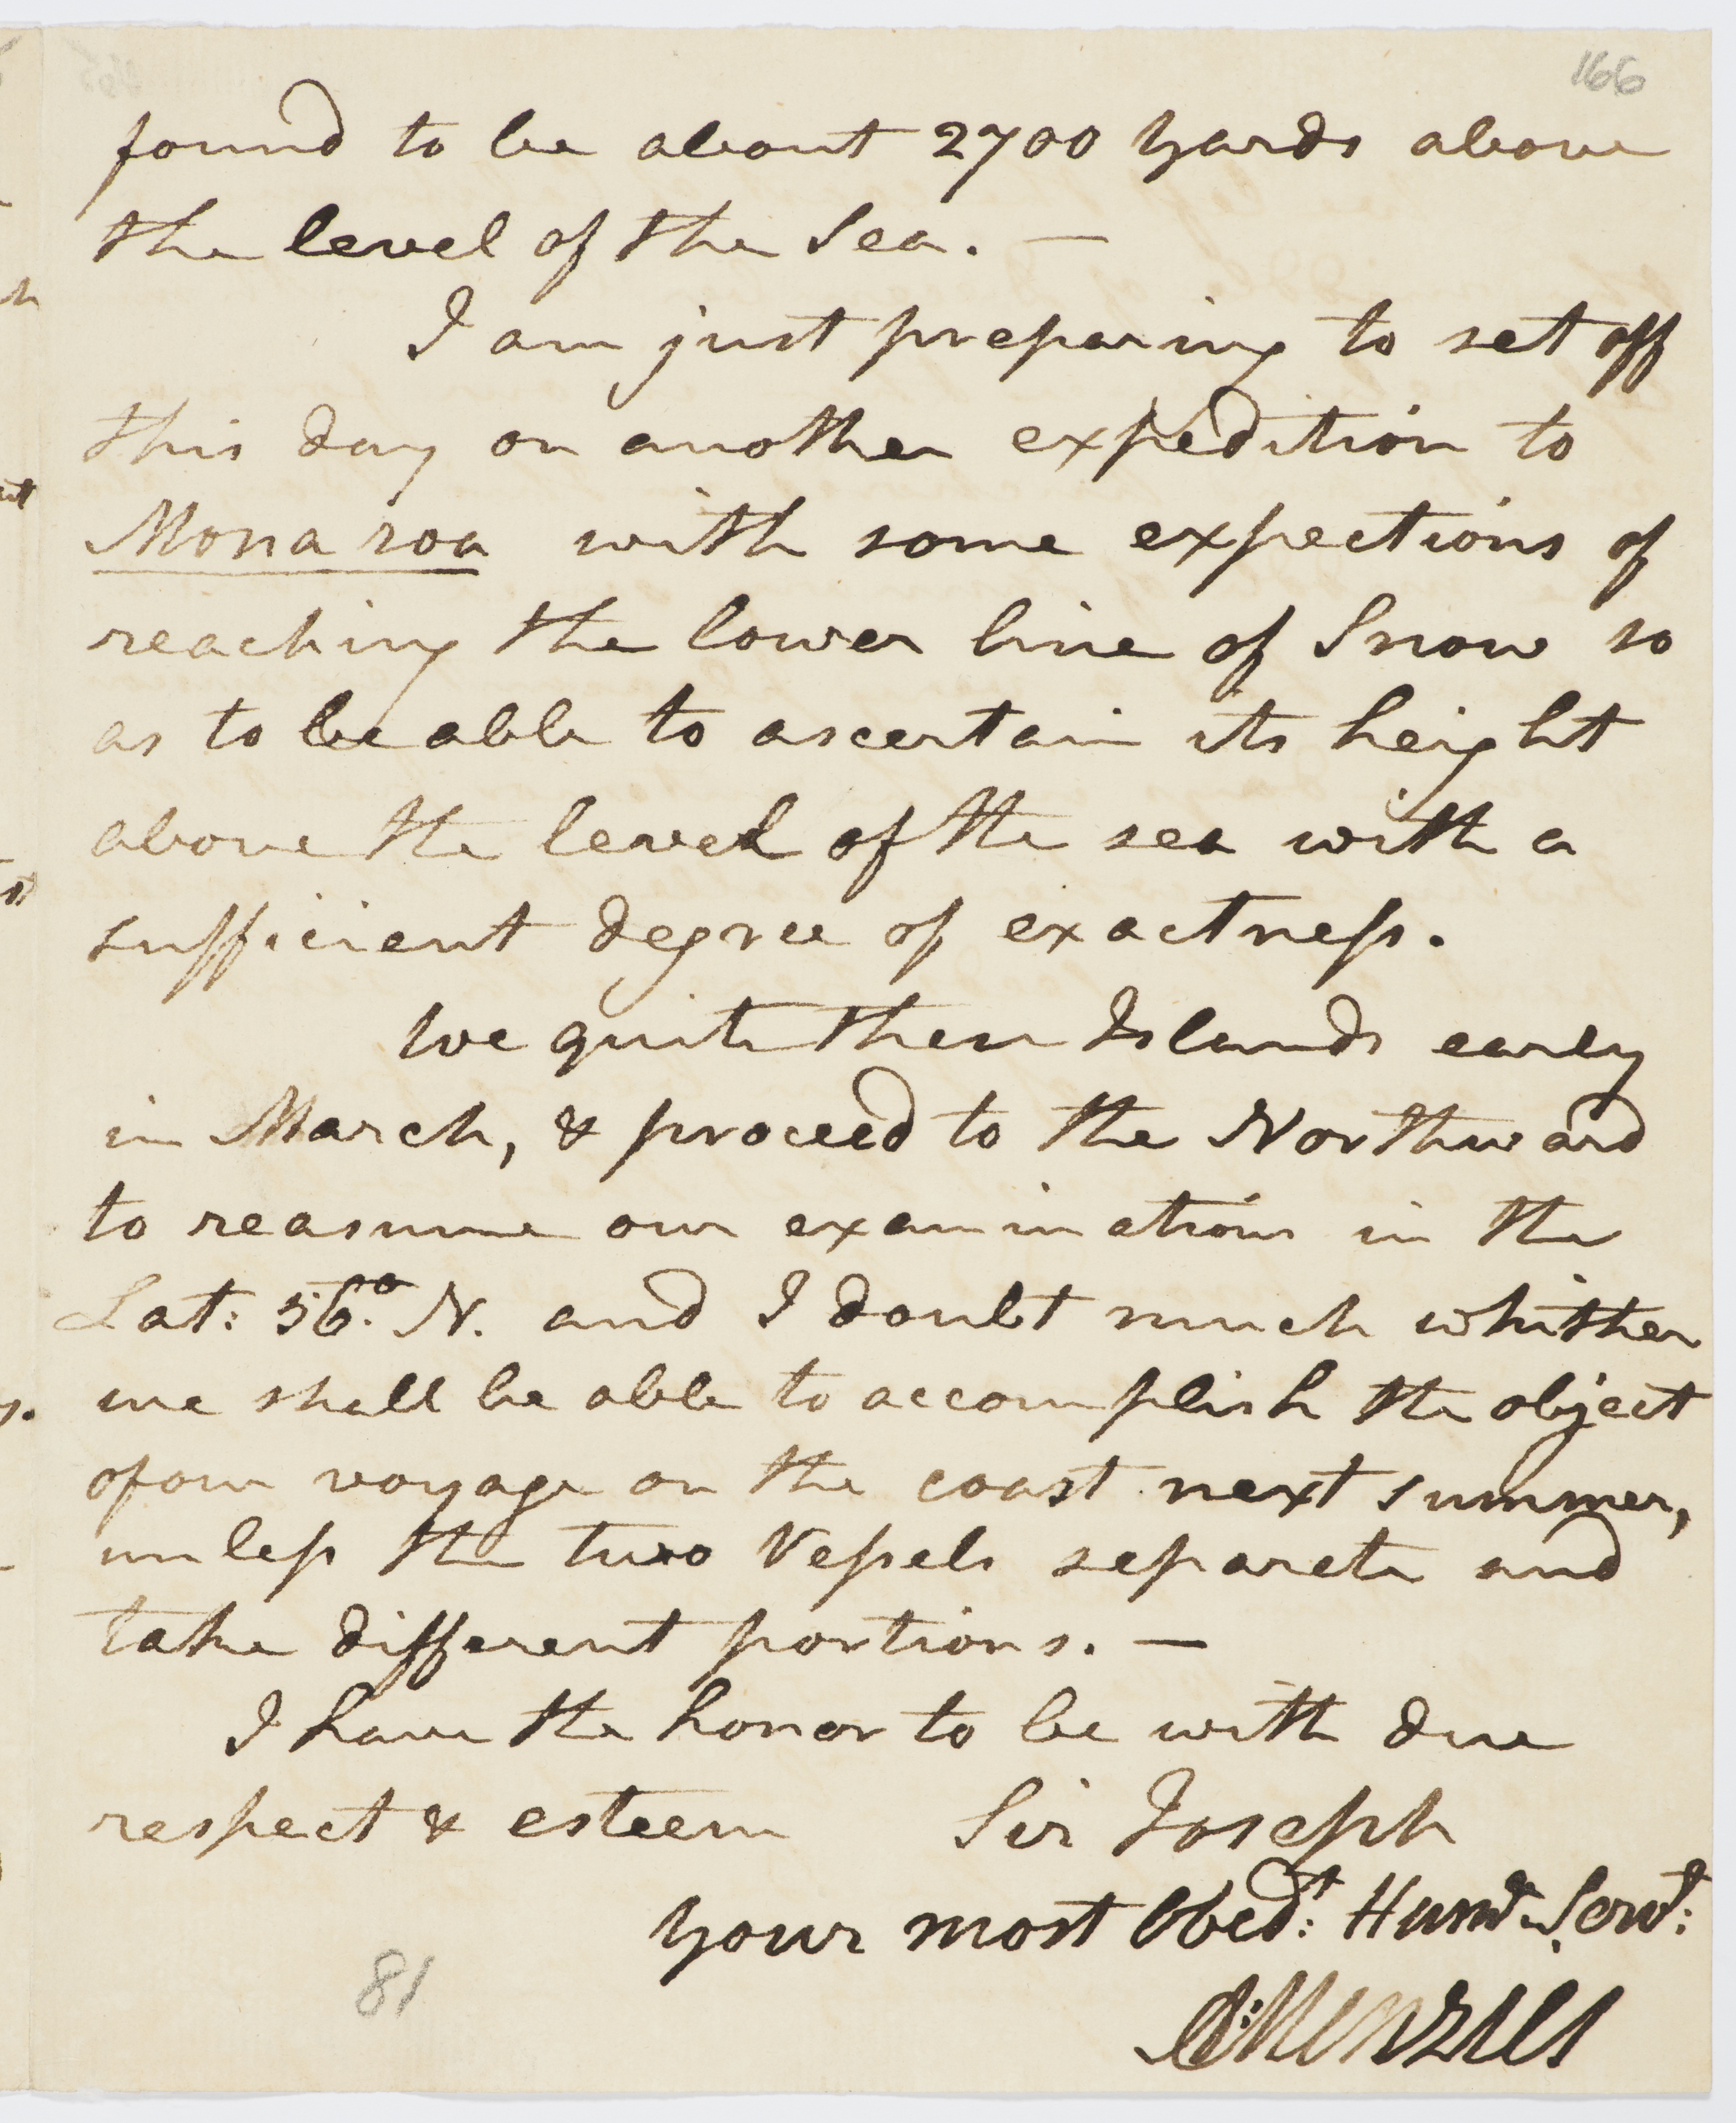 166
found to be about 2700 Yards above
the level of the Sea. —
I am just preparing to set off
this day on another expedition to
Mona roa with some expections of
reaching the lower line of Snow so
as to be able to ascertain its height
above the level of the sea with a
sufficient degree of exactneſs.
We quite these Islands early
in March, & proceed to the Northward
to reasume our examinations in the
Lat: 56.° N. and I doubt much whither
we shall be able to accomplish the object
of our voyage on the coast next summer,
unleſs the two Veſsels separate and
take different portions. —
I have the honor to be with due
respect & esteem Sir Joseph
Your most Obed.t: Hum.e Serv.t:
A: Menzies
81